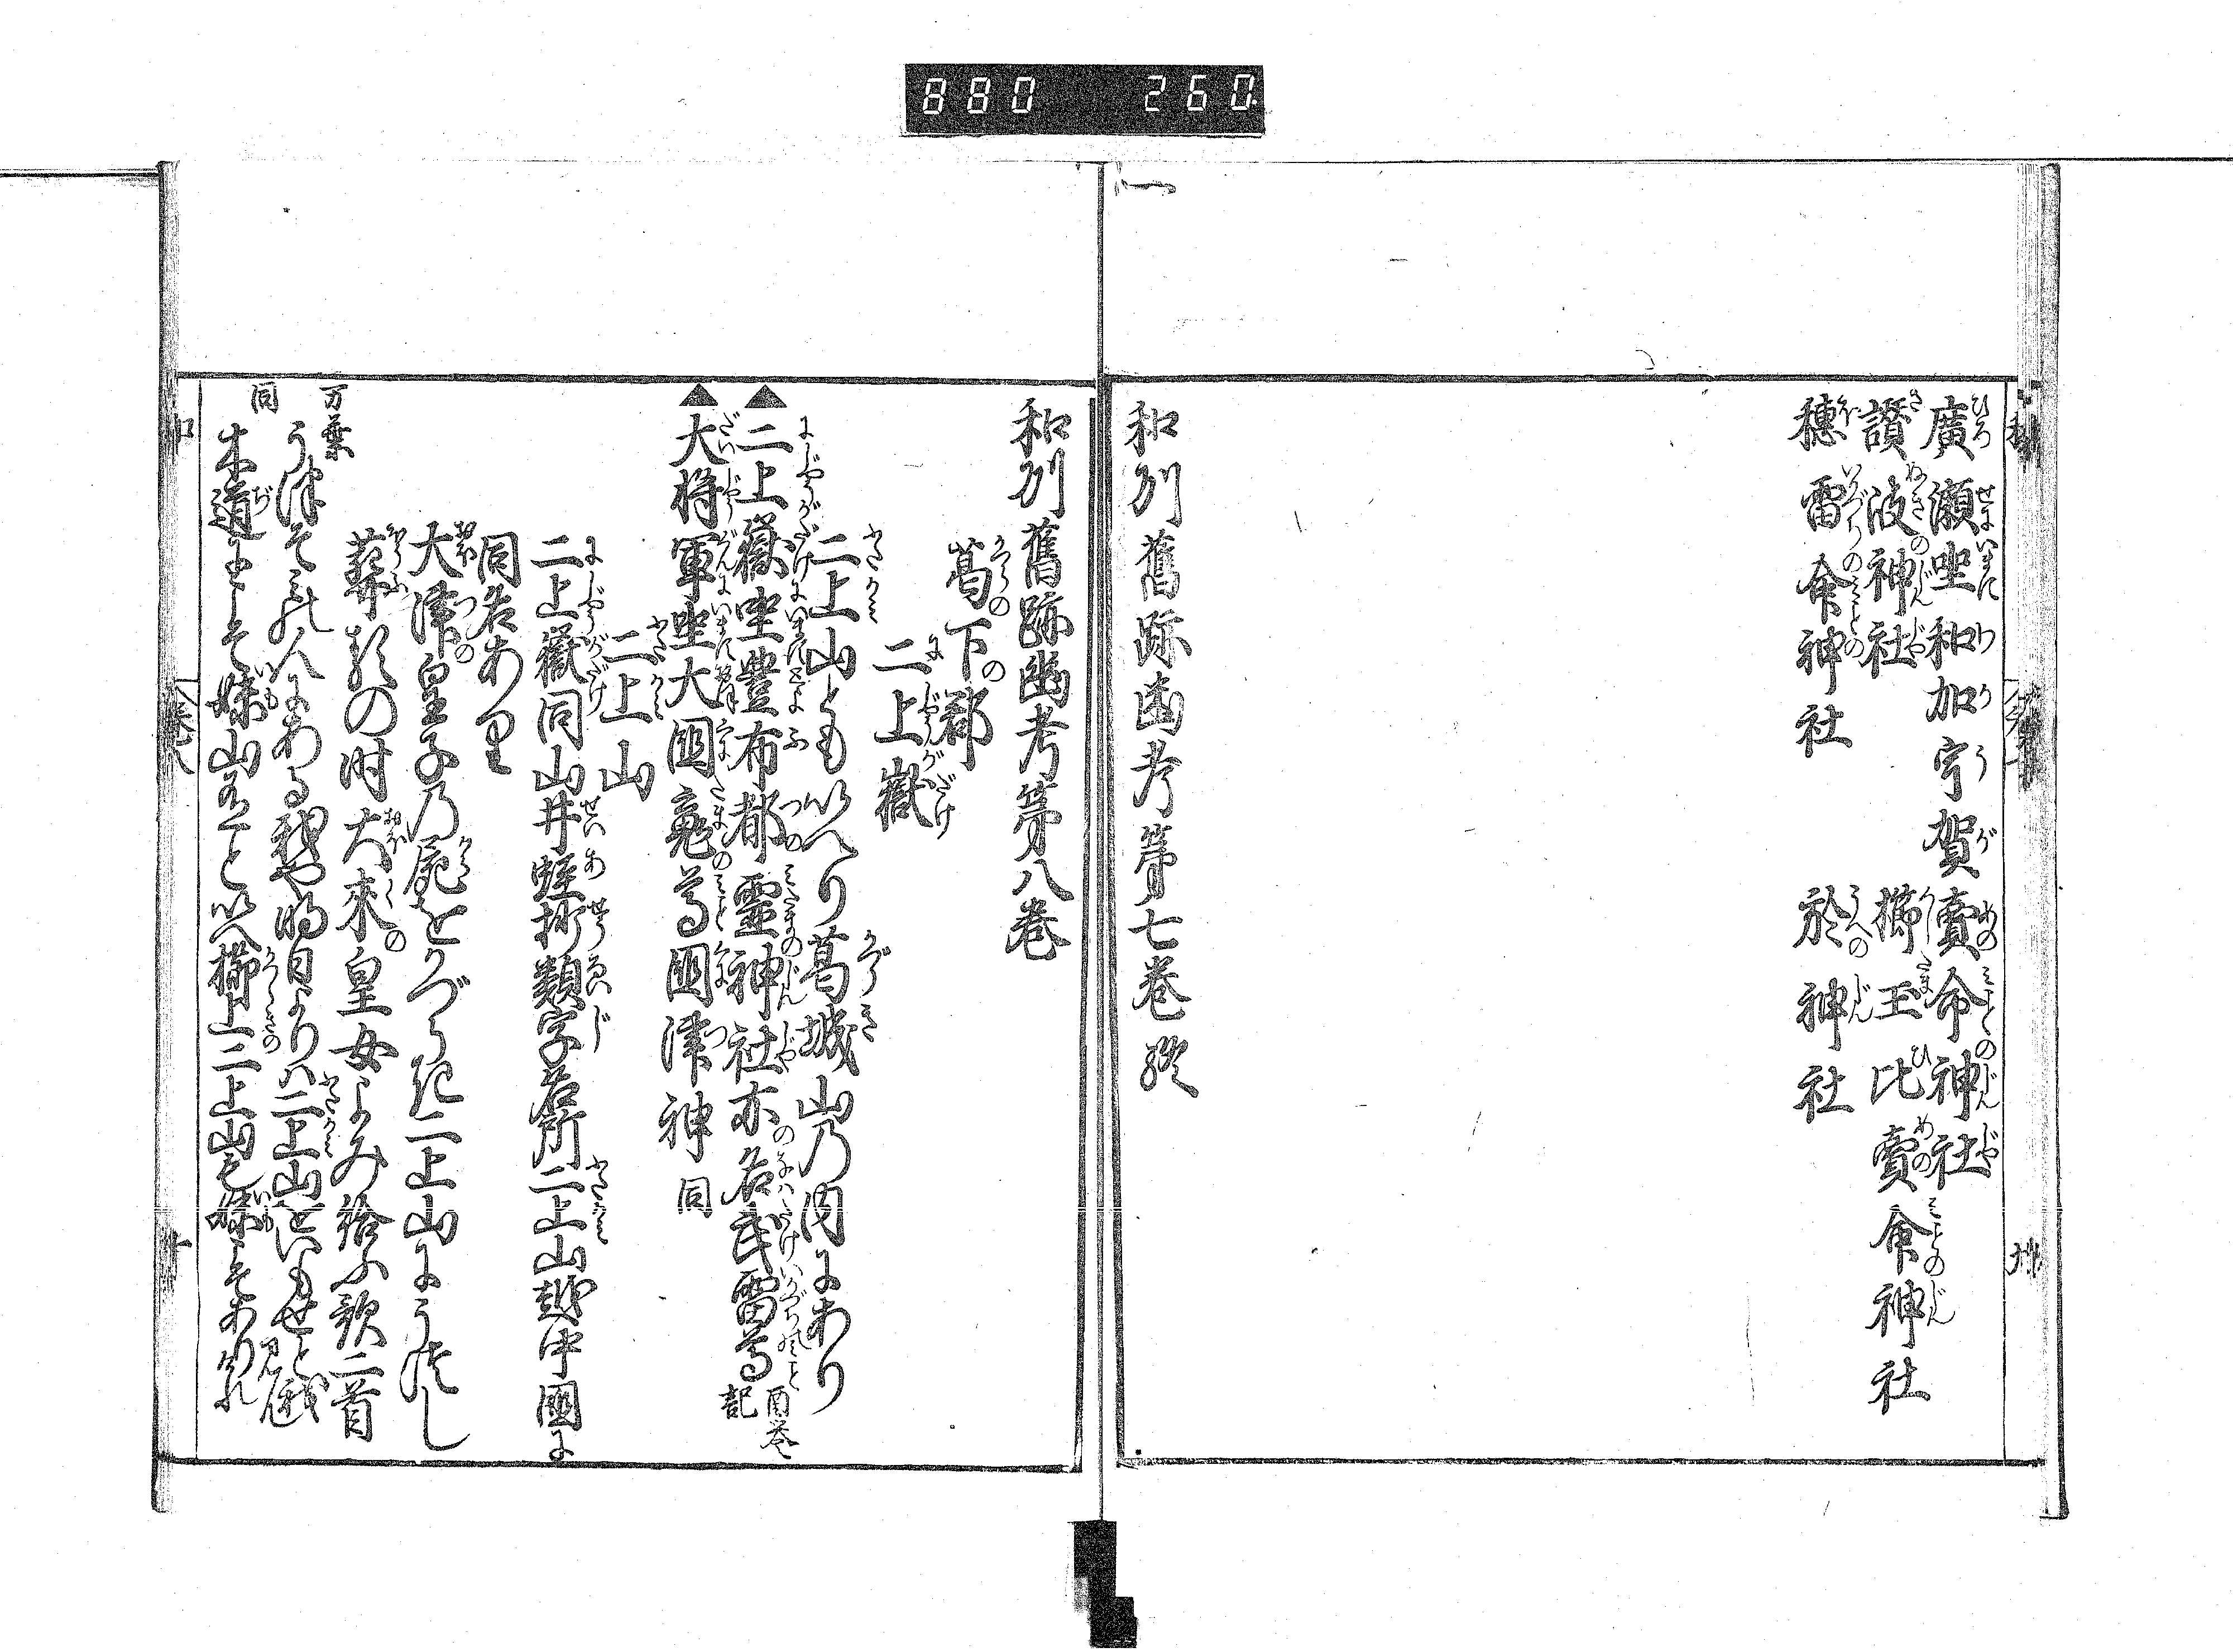 880 260
廣瀬坐和加宇賀賣命神社
讃岐神社　櫛玉比賣命神社
穂雷命神社　於神社
和州舊跡幽考第七巻終
和州舊跡幽考第八巻
葛下郡
二上嶽
二上山ともいへり葛城山乃内にあり
▲二上嶽坐豊布都靈神社亦名武雷尊
▲大将軍坐大國魂尊國津神 同
二上山
二上嶽同山井蛙抄類字名所二上山越中國に
同名あり
大津皇子乃屍をかづらき二上山にうつし
葬、の时大來皇女よみ給ふ歌二首
万葉
うつそみの人にあるわれや明日よりは二上山をいもせと我見
同
木道にこそ妹山ありといへ櫛上二上山も妹こそありけれ